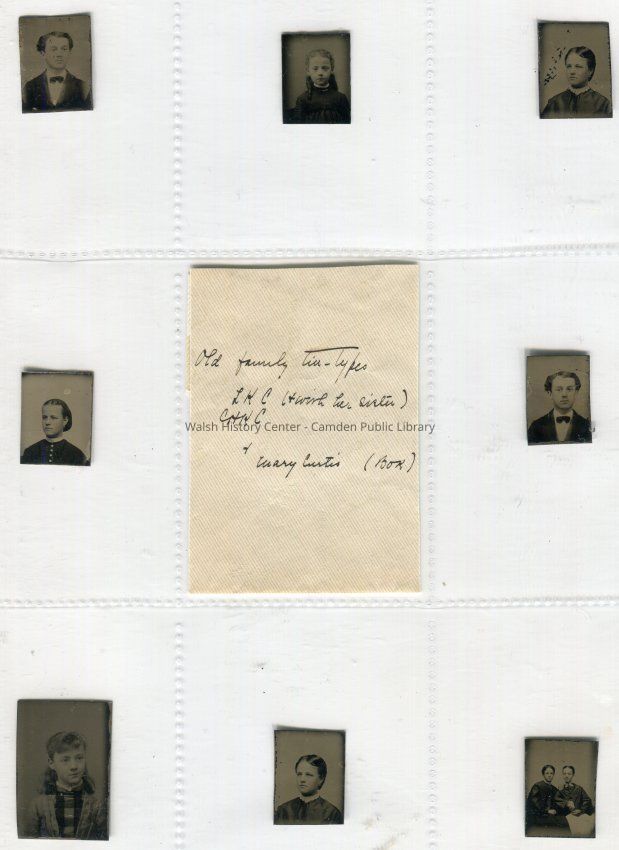 Old family tin-types
L K C (& with her sister)
C H C
Walsh History Center - Camden Public Library
& Mary Curtis (Box)